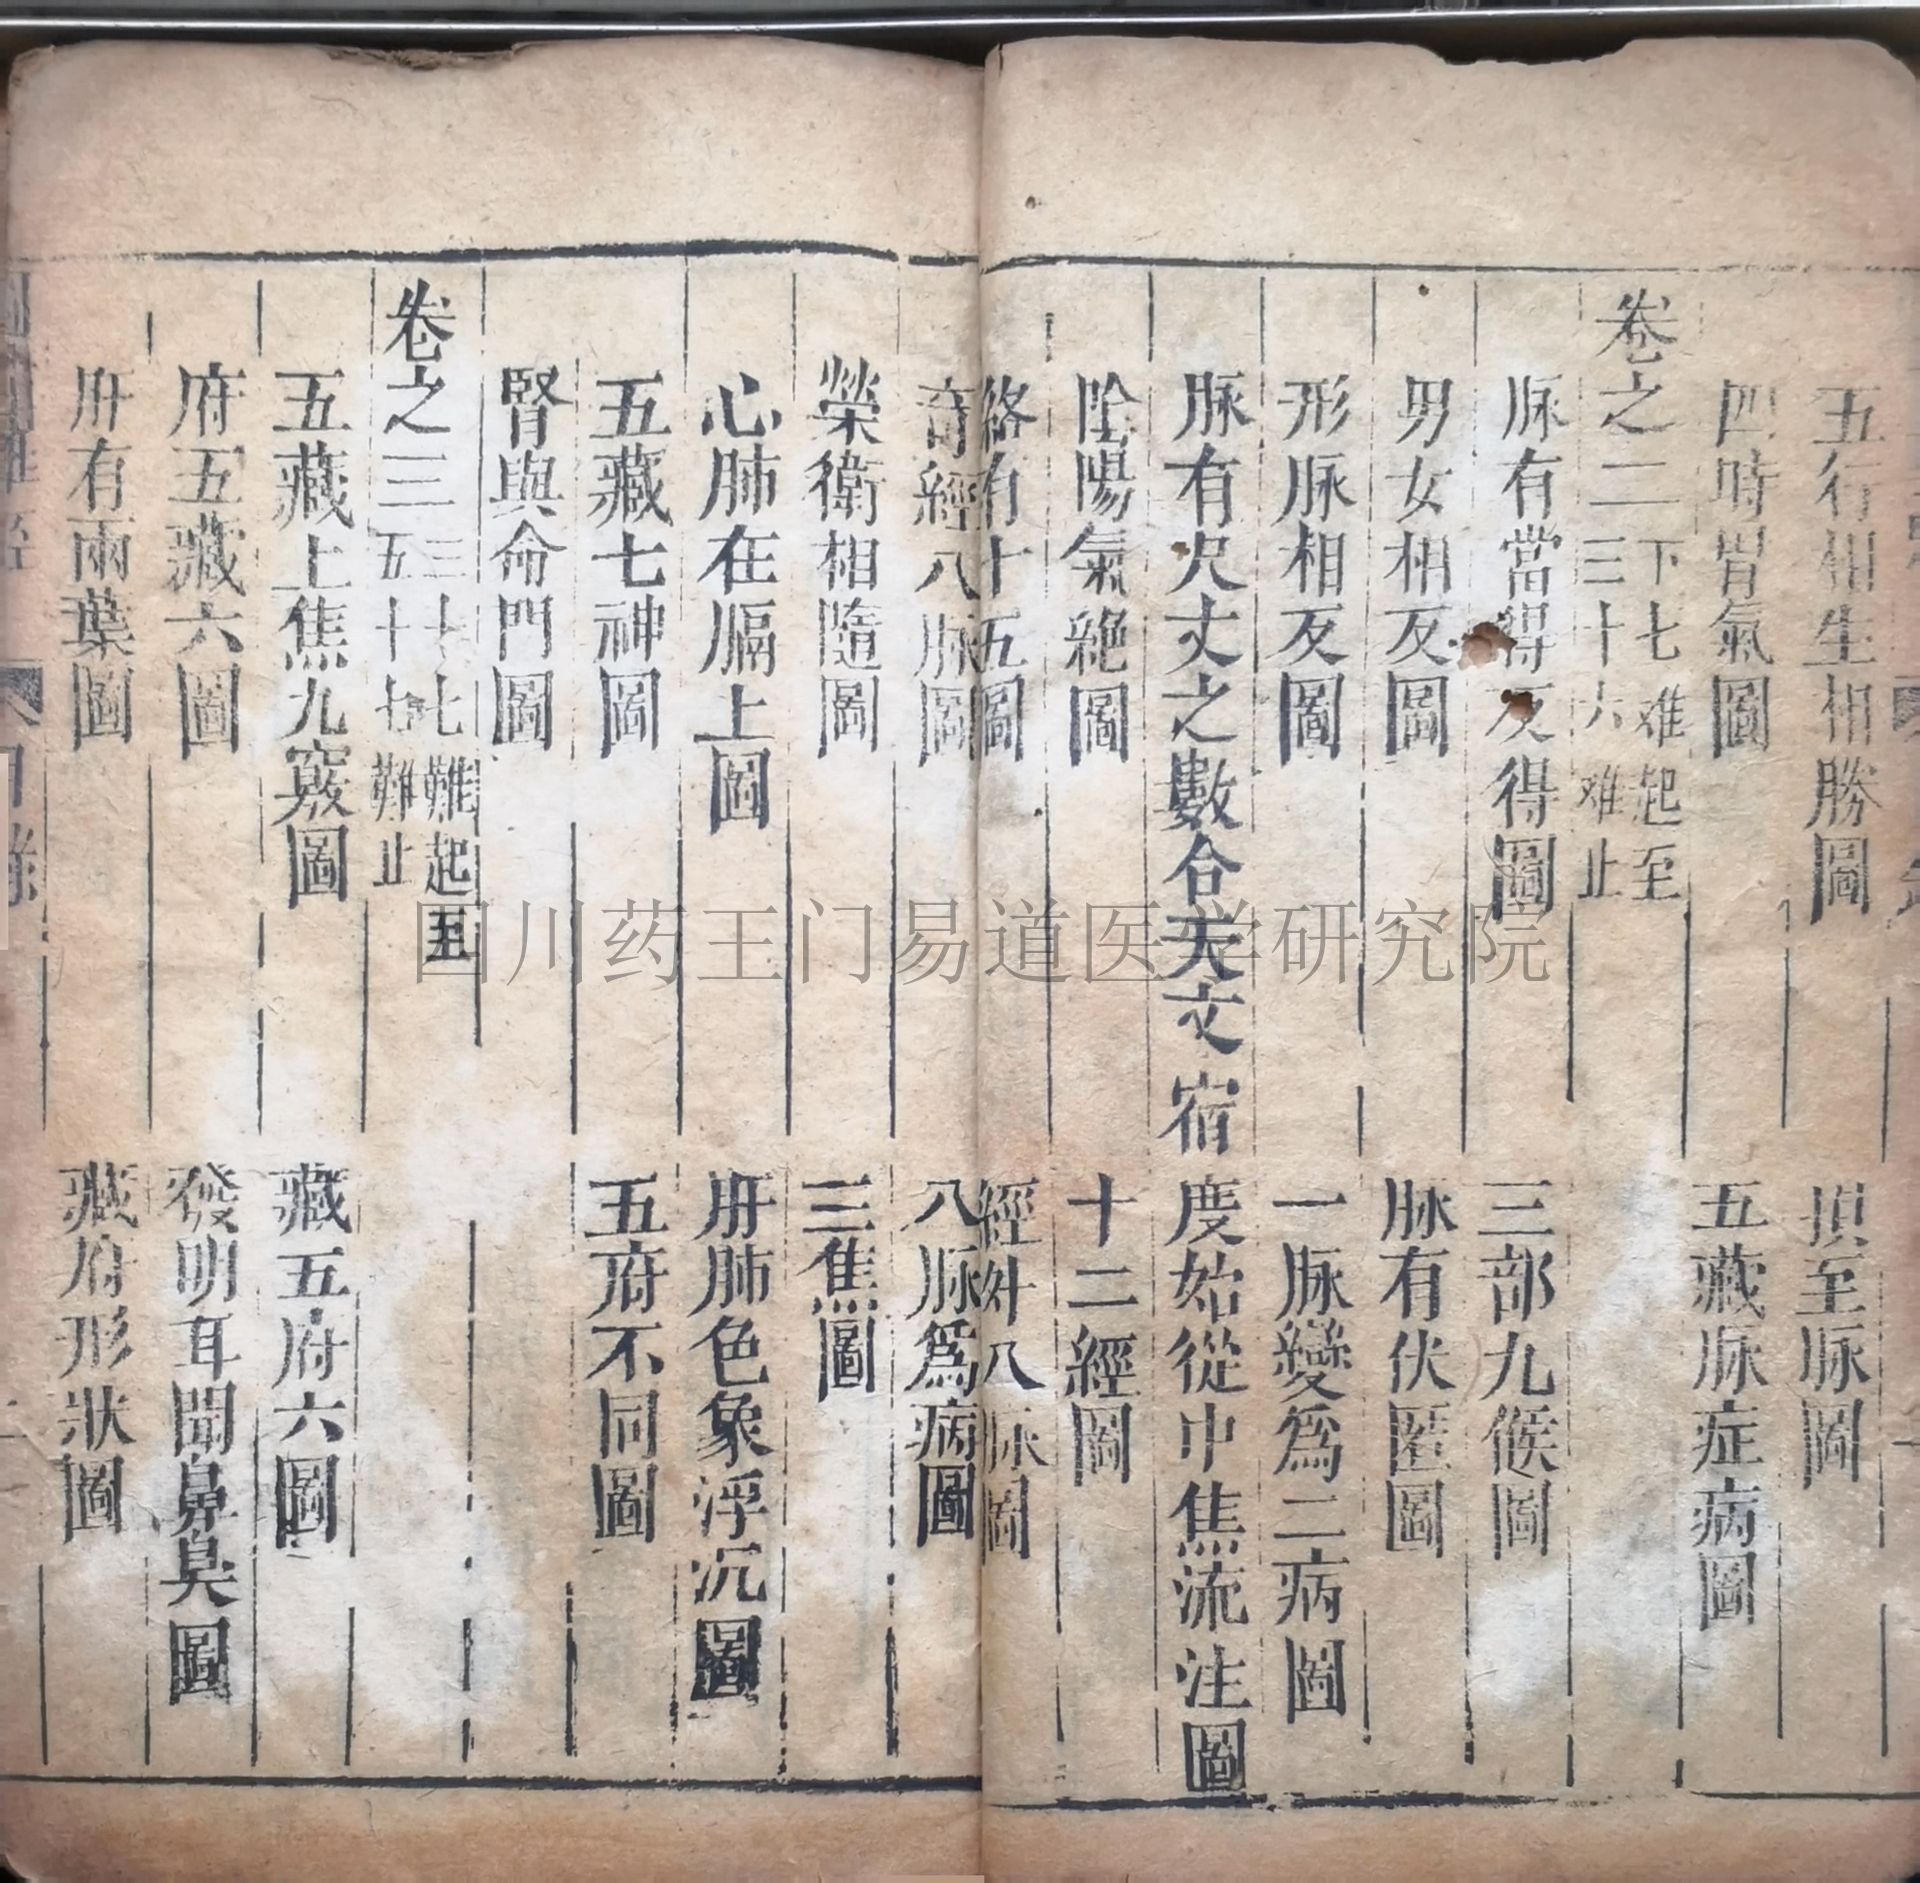 五行相生相勝圖　損至脉圖
四時胃氣圖　五藏脉症病圖
卷之二　下七难起至三十六难止
脉有當得反得圖　三部九候圖
男女相反圖　脉有伏匿圖
形脉相反圖　一脉變為二病圖
脉有尺丈之數合天文宿度始從中焦流注圖
陰陽氣絶圖　十二經圖
絡有十五圖　經外八脉圖
奇經八脉圖　八脉爲病圖
榮衛相隨圖　三焦圖
心肺在膈上圖　肝肺色象浮沉圖
五藏七神圖　五府不同圖
腎與命門圖
卷之三　三十七難起至五十七難止
五藏上焦九竅圖　藏五府六圖
府五藏六圖　發明耳聞鼻臭圖
肝有兩葉圖　藏府形狀圖
目錄
四川药王门易道医学研究院